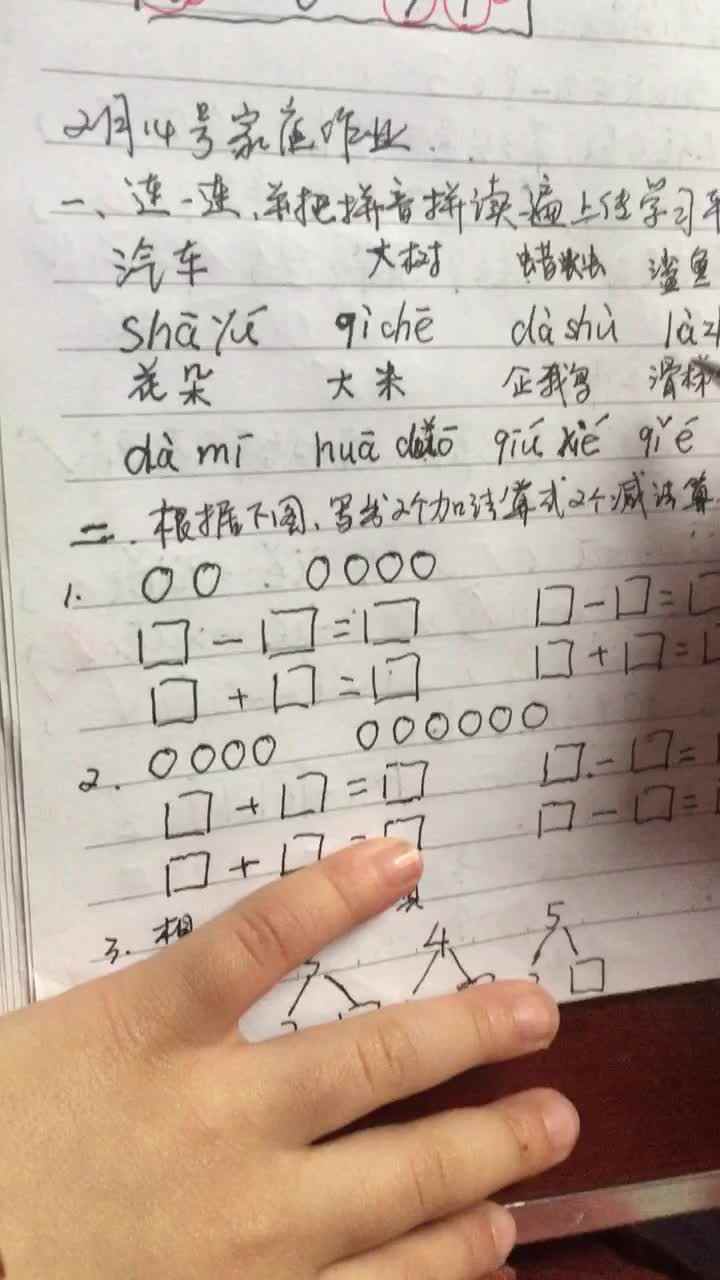 2月14号家庭作业
一、连一连,并把拼音拼读一遍上传学习
汽车 大树 蜡 鲨鱼
shā yú qì chē dà shù là
花朵 大米 企鹅 滑梯
dà mǐ huā duǒ qǐ é
二、根据下图、写出2个加法算式2个减法算
1. ○○ ○○○○
□-□=□ □-□=□
□+□=□ □+□=□
2. ○○○○ ○○○○○○
□+□=□ □-□=
□+□=□ □-□=
3.
4 5
□